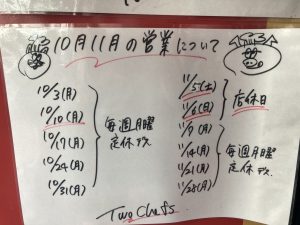 10月11月の営業について
10/3(月)
10/10(月)
10/17(月)
10/24(月)
10/31(月)
毎週月曜
定休です
11/5(土)
11/6(日)
店休日
11/7(月)
11/14(月)
11/21(月)
11/28(月)
毎週月曜
定休です
Two Chefs.